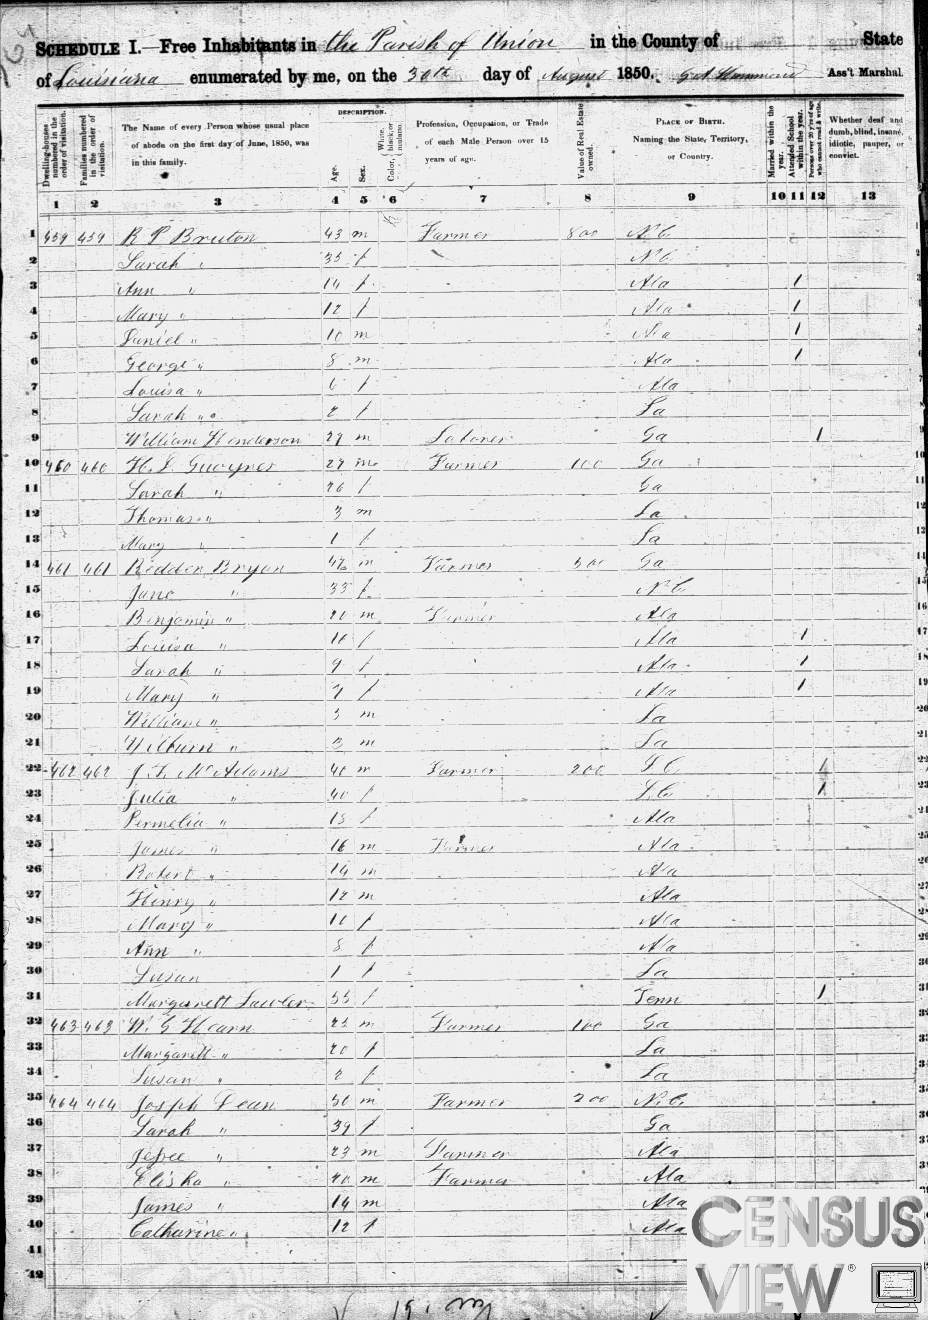 SCHEDULE I.—Free Inhabitants in the Parish of Union in the County of State
of Louisiana enumerated by me, on the 30th day of August 1850. Ass't Marshal.
Dwelling-houses numbered in the order of visitation.
Families numbered in the order of visitation.
The Name of every Person whose usual place of abode on the first day of June, 1850, was in this family.
DESCRIPTION.
Age.
Sex.
Color, White, black, or mulatto.
Profession, Occupation, or Trade of each Male Person over 15 years of age.
Value of Real Estate owned.
PLACE OF BIRTH. Naming the State, Territory, or Country.
Married within the year.
Attended School within the year.
Persons over 20 y'rs of age who cannot read & write.
Whether deaf and dumb, blind, insane, idiotic, pauper, or convict.
1 2 3 4 5 6 7 8 9 10 11 12 13
1 459 459 R P Bruton 43 m Farmer 800 N.C. 1
2 Sarah " 35 f N C 2
3 Ann " 14 f Ala 1 3
4 Mary " 12 f Ala 1 4
5 Daniel " 10 m Ala 1 5
6 George " 8 m Ala 1 6
7 Louisa " 6 f Ala 7
8 Sarah " 2 f La 8
9 William Henderson 29 m Laborer Ga 1 9
10 460 460 29 m Farmer 100 Ga 10
11 Sarah " 26 f Ga 11
12 Thomas " 3 m La 12
13 Mary " 1 f La 13
14 461 461 Redden Bryan m Farmer 300 Ga 14
15 Jane " 35 f N.C. 15
16 Benjamin " 20 m Farmer Ala 16
17 Louisa " f Ala 1 17
18 Sarah " 9 f Ala 1 18
19 Mary " 7 f Ala 1 19
20 William " m La 20
21 Wilburn " 3 m La 21
22 462 462 McAdams 40 m Farmer 200 S.C. 1 22
23 Julia " 40 f S.C. 1 23
24 Permelia " 18 f Ala 24
25 James " 16 m Farmer Ala 25
26 Robert " 14 m Ala 26
27 Henry " 12 m Ala 27
28 Mary " 10 f Ala 28
29 Ann " 8 f Ala 29
30 Susan 1 f La 30
31 Margarett Lawler 55 f Tenn 1 31
32 463 463 W. G Hearn m Farmer 100 Ga 32
33 Margarett " 20 f La 33
34 Susan " 2 f La 34
35 464 464 Joseph Dean 50 m Farmer 200 N.C. 35
36 Sarah " 39 f Ga 36
37 Jessee " 23 m Farmer Ala 37
38 Elisha " 20 m Farmer Ala 38
39 James " 14 m Ala
40 Catharine " 12 f Ala
41
42
CENSUS
VIEW®